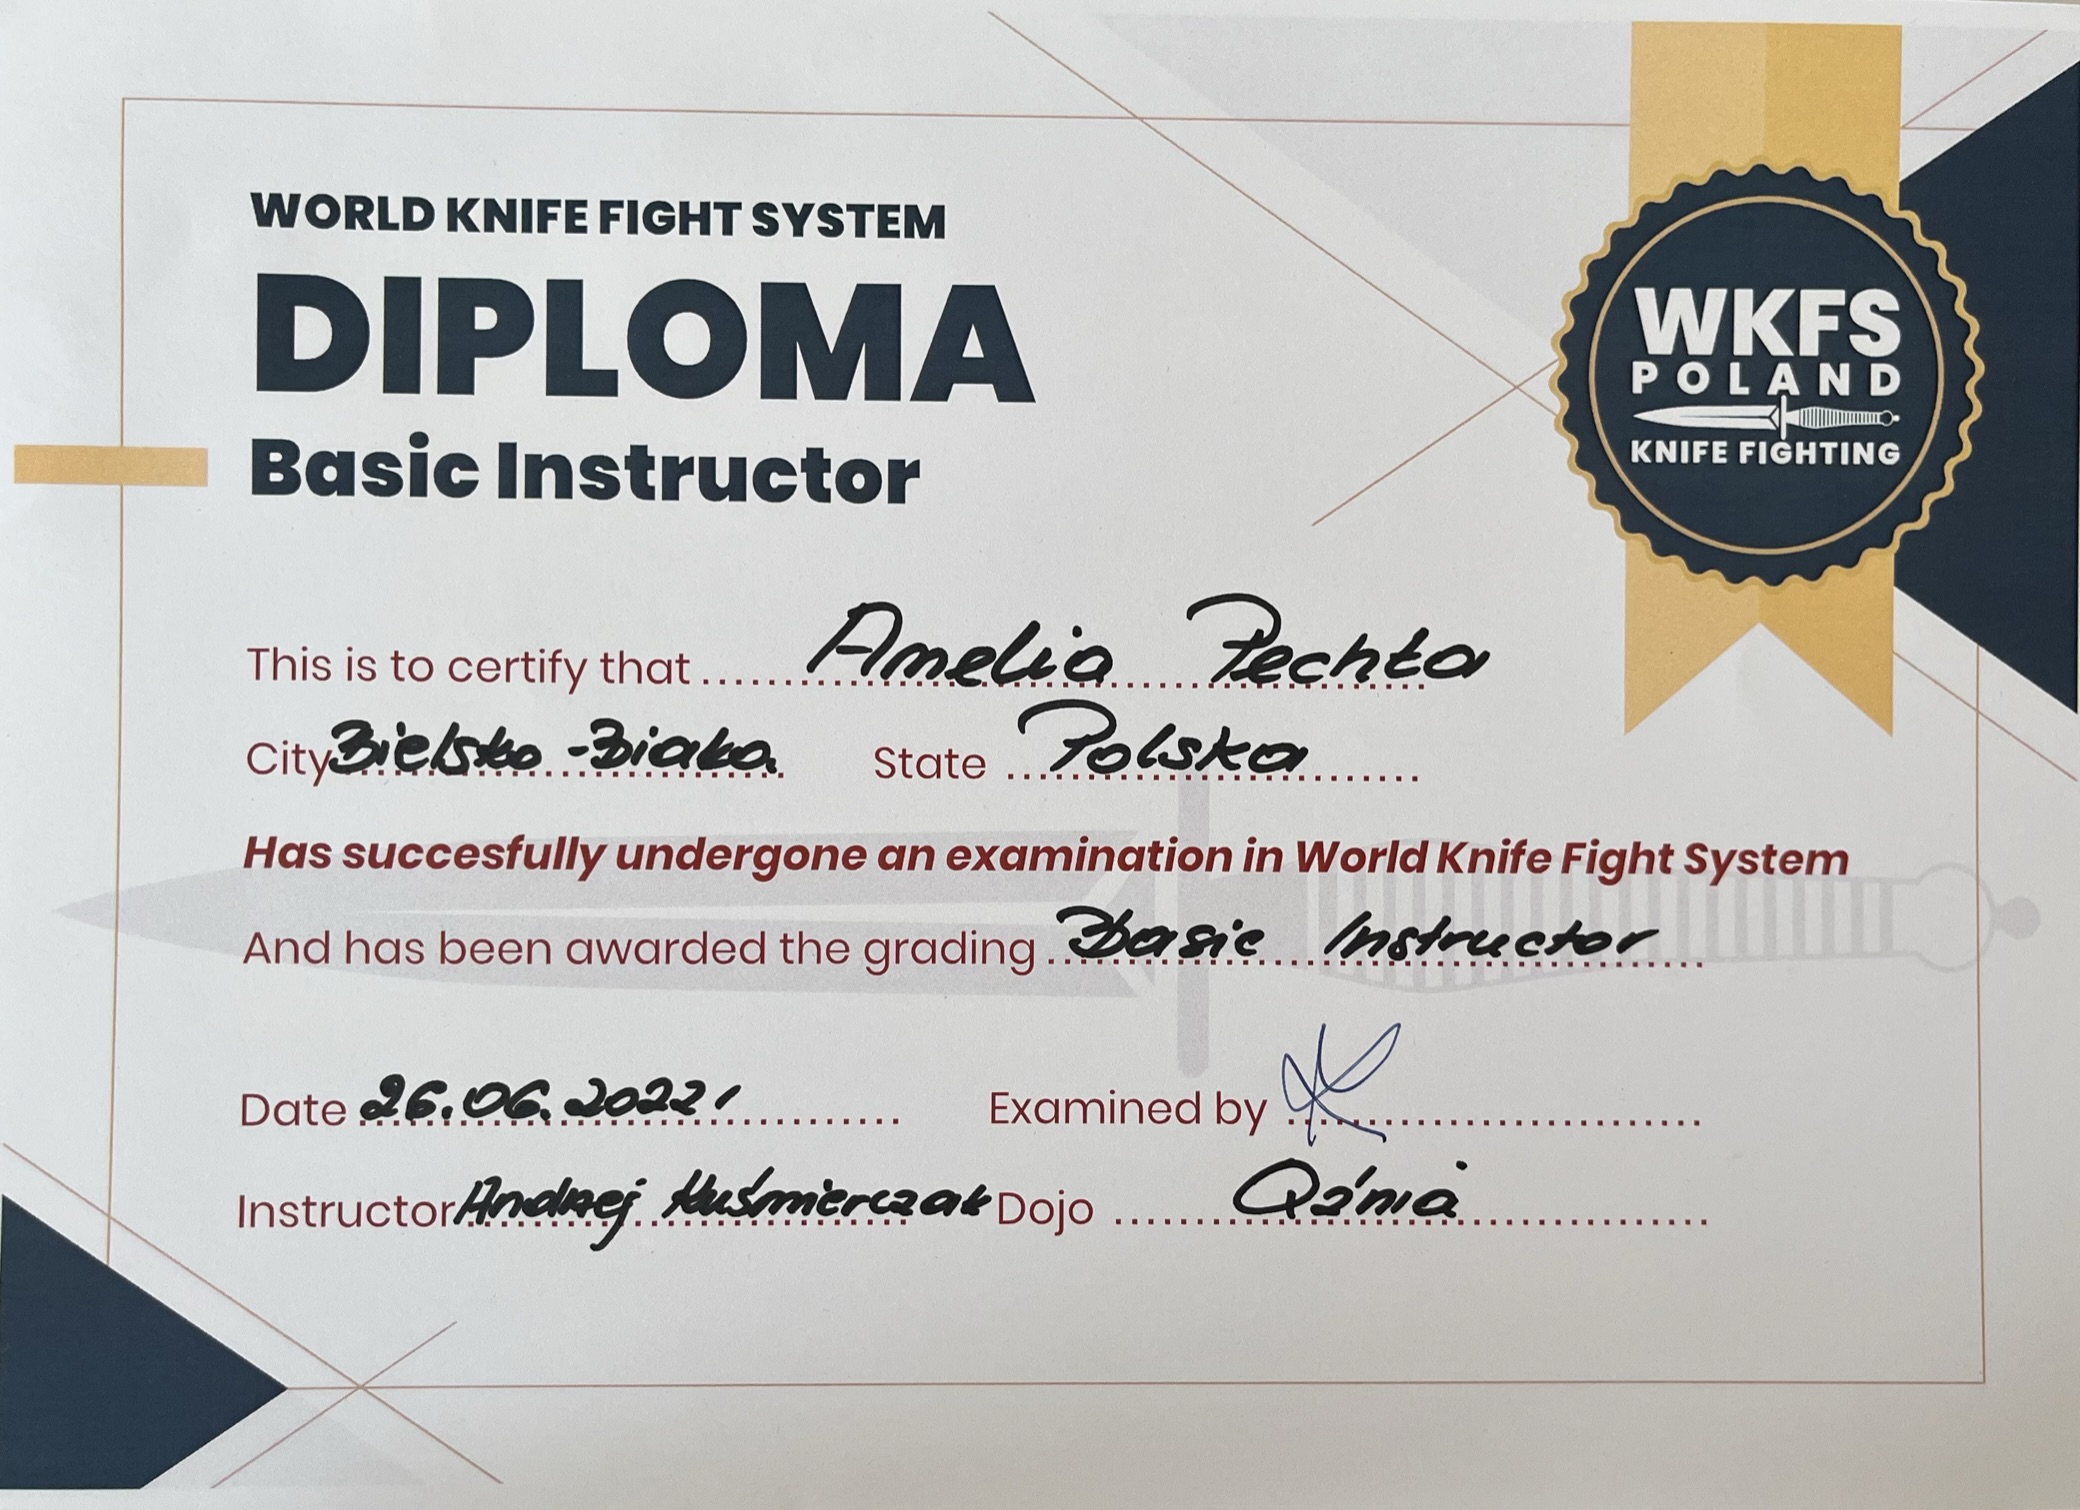 WORLD KNIFE FIGHT SYSTEM
DIPLOMA
Basic Instructor
WKFS
POLAND
KNIFE FIGHTING
This is to certify that Amelia Pechta
City Bielsko-Biała State Polska
Has succesfully undergone an examination in World Knife Fight System
And has been awarded the grading Basic Instructor
Date 26.06.2022r Examined by
Instructor Andrzej Kuśmierczak Dojo